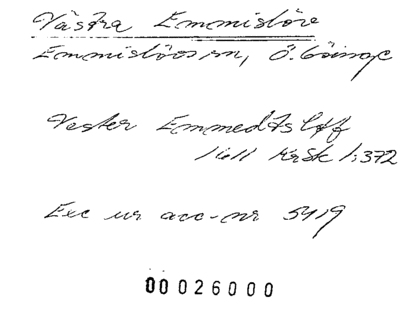 Västra Emmislöv
Emmislövs sn, Ö. Göinge
Vester Emmedtsløff
1611 KrSk 1:372
Exc ur acc-nr 5419
00026000